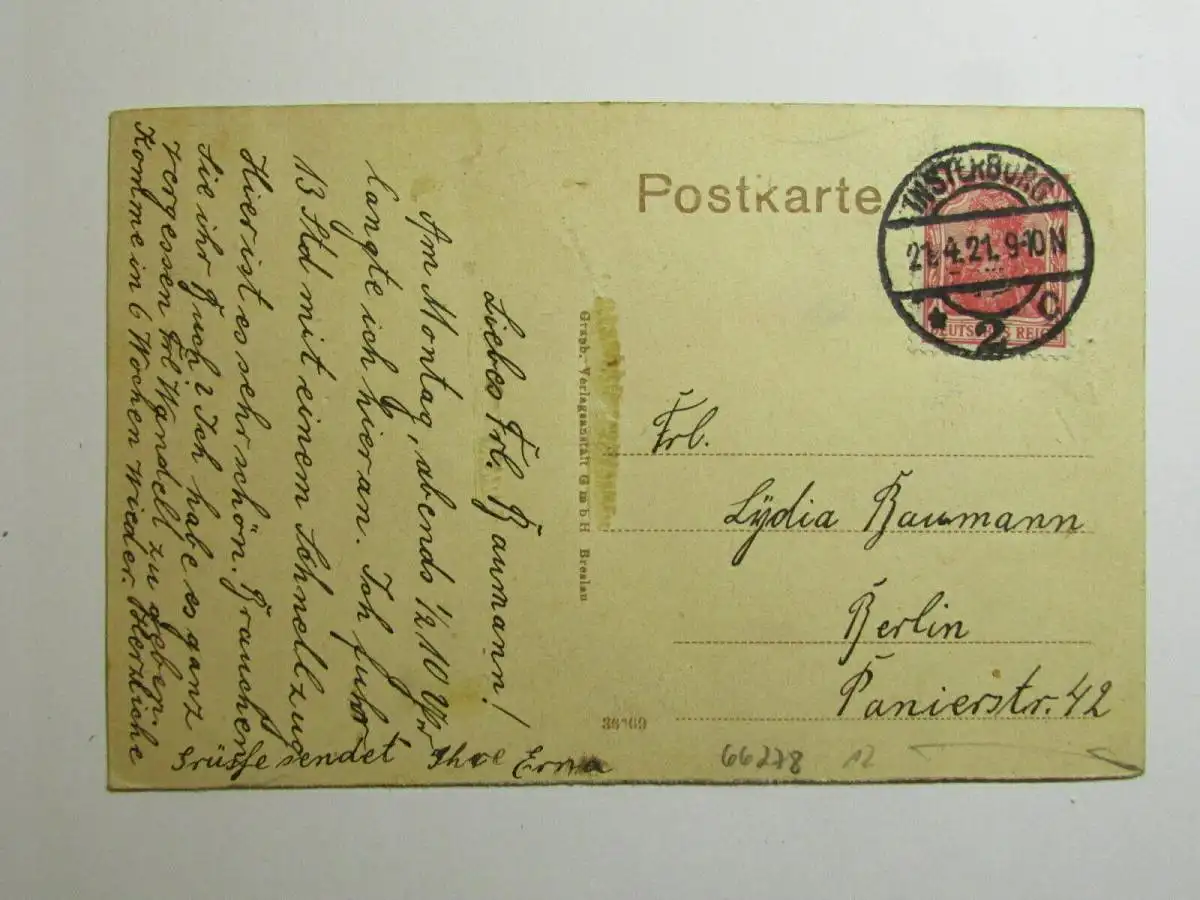 Postkarte
INSTERBURG
21.4.21. 9-10 N
* 2 c
DEUTSCHES REICH
Frl.
Lydia Baumann
Berlin
Panierstr. 42
Graph. Verlagsanstalt GmbH Breslau
66278 12
Liebes Frl. Baumann!
Am Montag, abends 1/2 10 Uhr
langte ich hier an. Ich fuhr
13 Std mit einem Schnellzug
Hier ist es sehr schön. Brauchen
Sie ihr Buch? Ich habe es ganz
vergessen Frl Wandelt zu geben.
Komme in 6 Wochen wieder. Herzliche
Grüsse sendet Ihre Erna